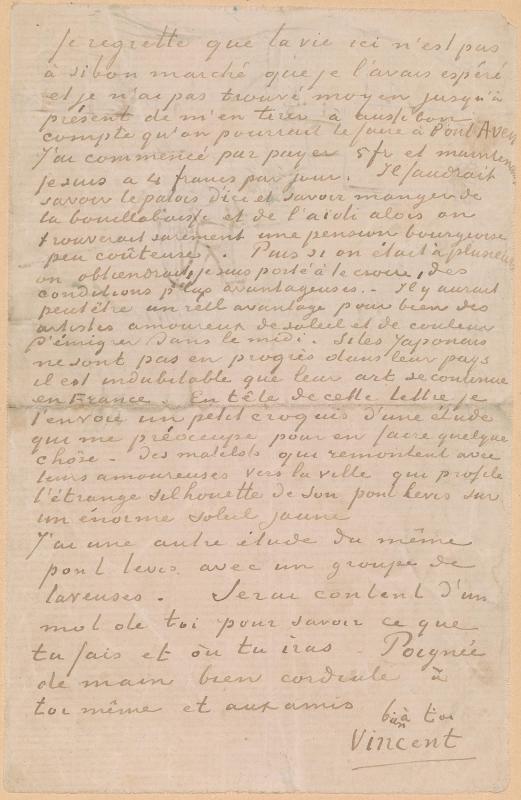 Je regrette que la vie ici n'est pas
à si bon marché que je l'avais espéré
et je n'ai pas trouvé moyen jusqu'à
présent de m'en tirer à aussi bon
compte qu'on pourrait le faire à Pont Aven
J'ai commencé par payer 5 fr et maintenant
je suis a 4 francs par jour. Il faudrait
savoir le patois d'ici et savoir manger de
la bouillabaisse et de l'aioli alors on
trouverait surement une pension bourgeoise
peu coûteuse. Puis si on était à plusieurs
on obtiendrait, je suis porté à le croire, des
conditions plus avantageuses. - Il y aurait
peut être un réel avantage pour bien des
artistes amoureux de soleil et de couleur
d'émigrer dans le midi. Si les Japonais
ne sont pas en progrès dans leur pays
il est indubitable que leur art se continue
en France. En tête de cette lettre je
t'envoie un petit croquis d'une étude
qui me préoccupe pour en faire quelque
chôse - Des matelots qui remontent avec
leurs amoureuses vers la ville qui profile
l'étrange silhouette de son pont levis sur
un énorme soleil jaune
J'ai une autre étude du même
pont levis avec un groupe de
laveuses. Serai content d'un
mot de toi pour savoir ce que
tu fais et où tu iras. Poignée
de main bien cordiale à
toi même et aux amis
bien à toi
Vincent